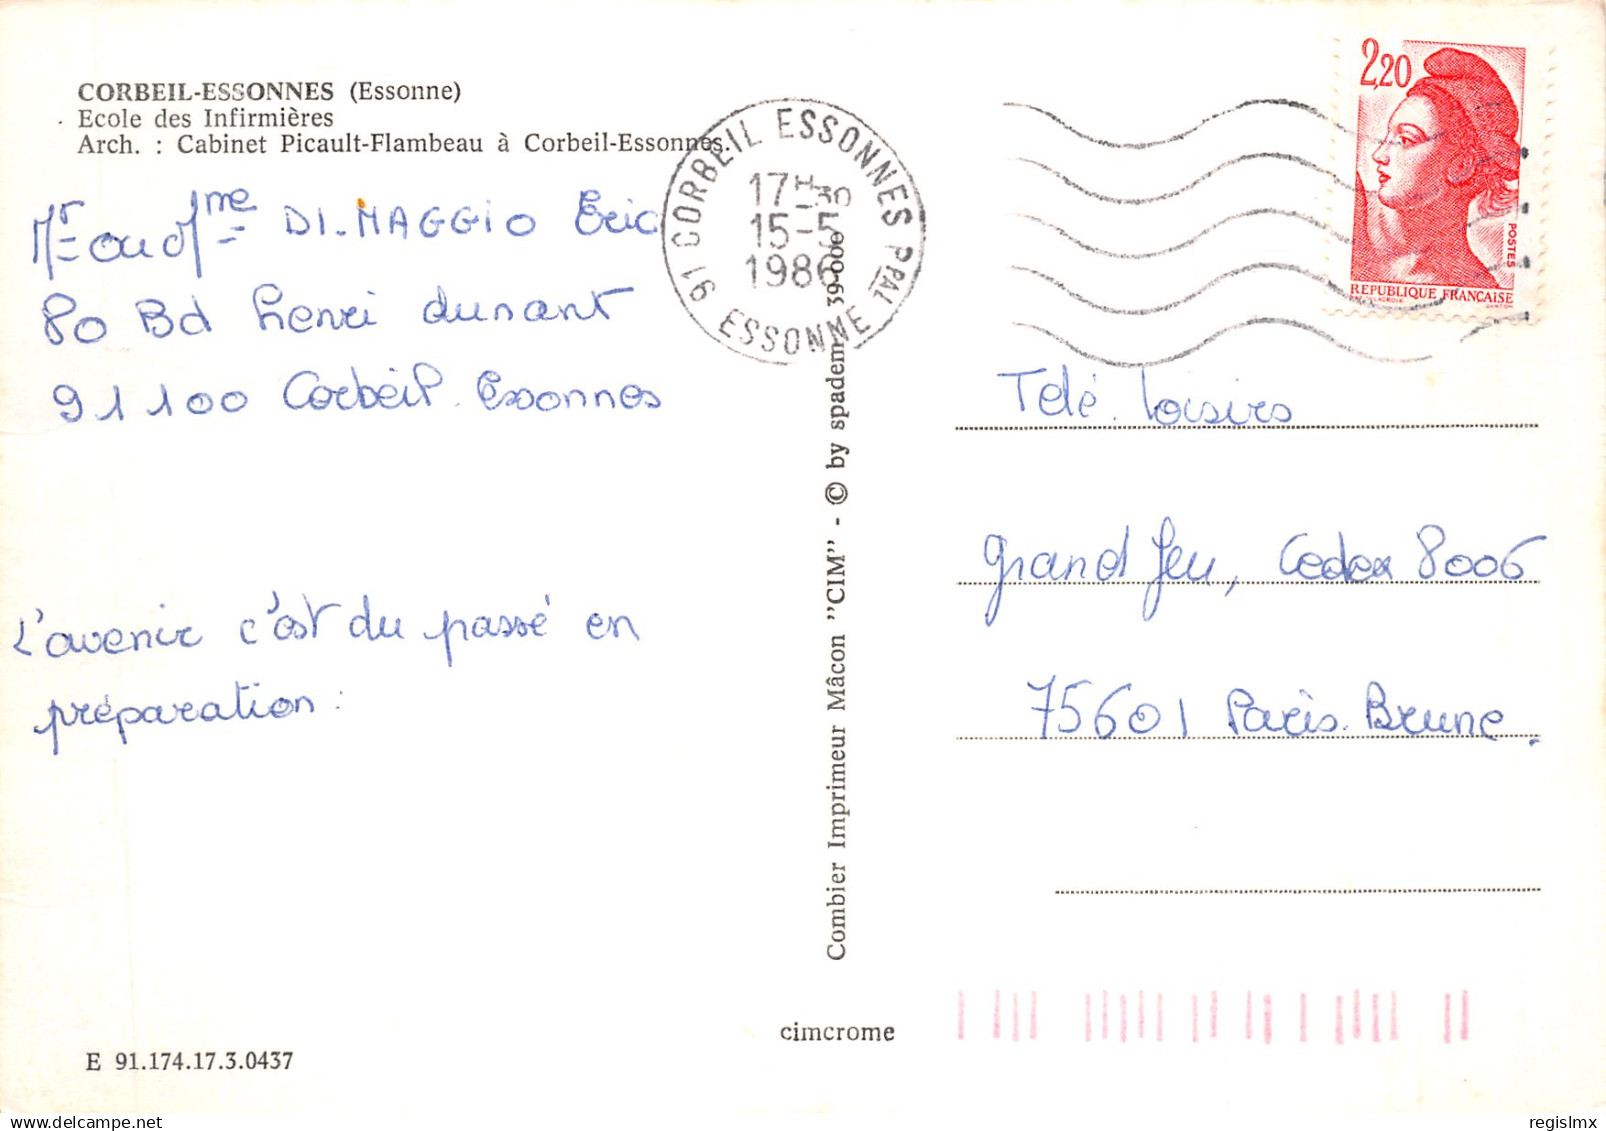 CORBEIL-ESSONNES (Essonne)
Ecole des Infirmières
Arch. : Cabinet Picault-Flambeau à Corbeil-Essonnes.
Mr ou Mme DI.MAGGIO Eric
80 Bd henri dunant
91100 Corbeil.Essonnes
L'avenir c'est du passé en
préparation.
E 91.174.17.3.0437
91 CORBEIL ESSONNES PPAL
17H30
15-5
1986
ESSONNE
Combier Imprimeur Mâcon "CIM" - © by spadem 39-000
cimcrome
2,20
POSTES
REPUBLIQUE FRANCAISE
Télé.Loisirs
grand Jeu, Cedex 8006
75601 Paris.Brune.
delcampe.net
regislmx